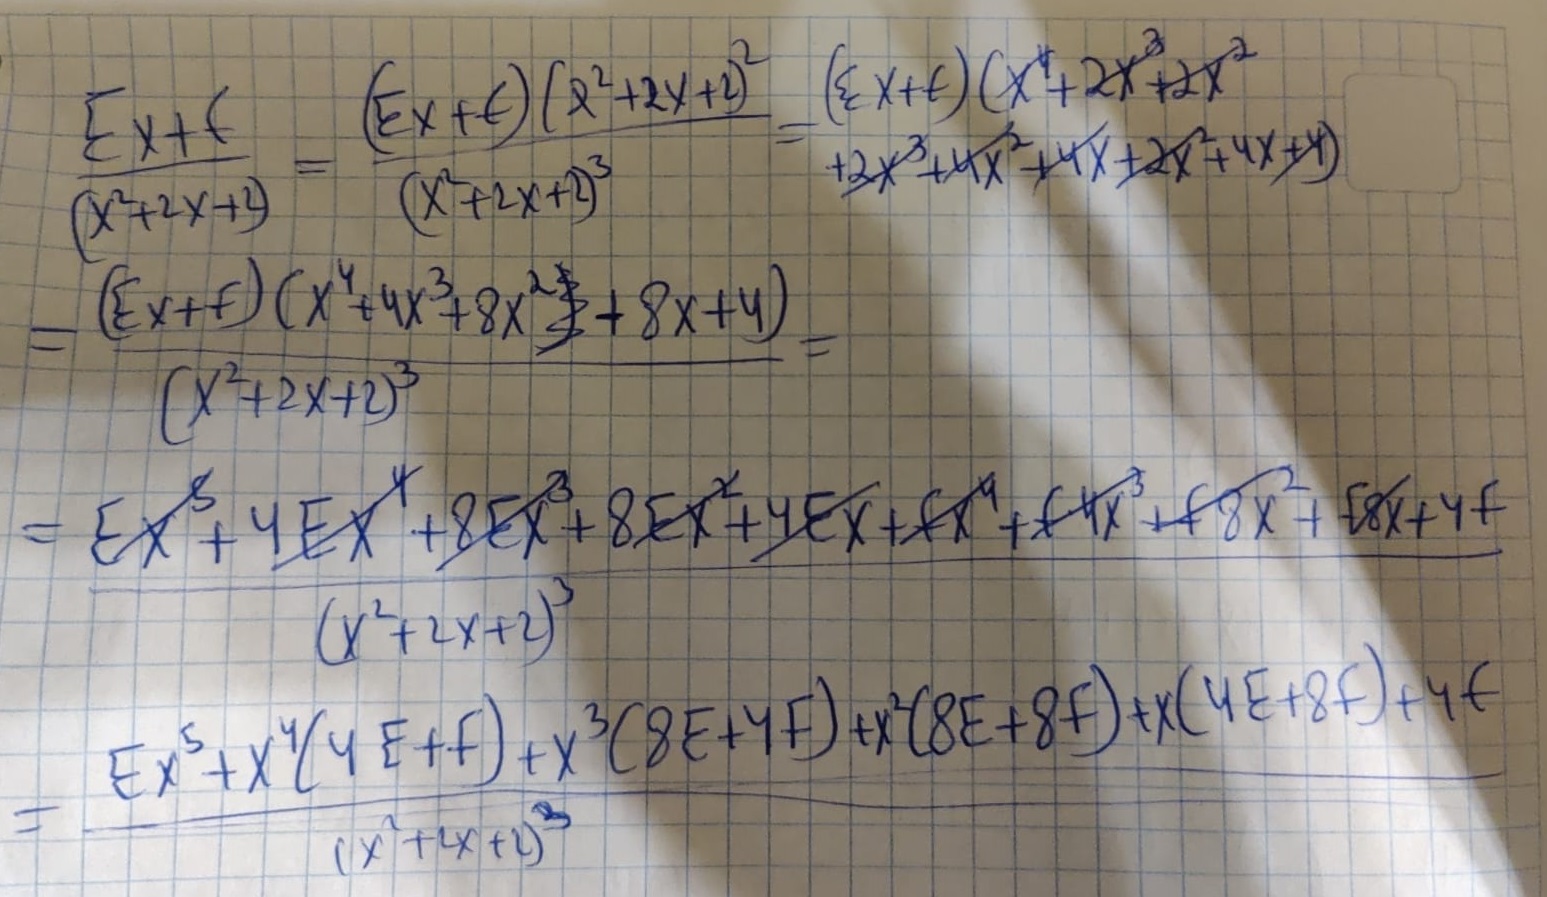 (Ex+f)/(x²+2x+2) = (Ex+f)(x²+2x+2)²/(x²+2x+2)³ = (Ex+f)(x⁴+2x³+2x²
+2x³+4x²+4x+2x²+4x+4)
= (Ex+f)(x⁴+4x³+8x²+8x+4)/(x²+2x+2)³ =
= (Ex⁵+4Ex⁴+8Ex³+8Ex²+4Ex+fx⁴+f4x³+f8x²+f8x+4f)/(x²+2x+2)³
= (Ex⁵+x⁴(4E+f)+x³(8E+4f)+x²(8E+8f)+x(4E+8f)+4f)/(x²+2x+2)³